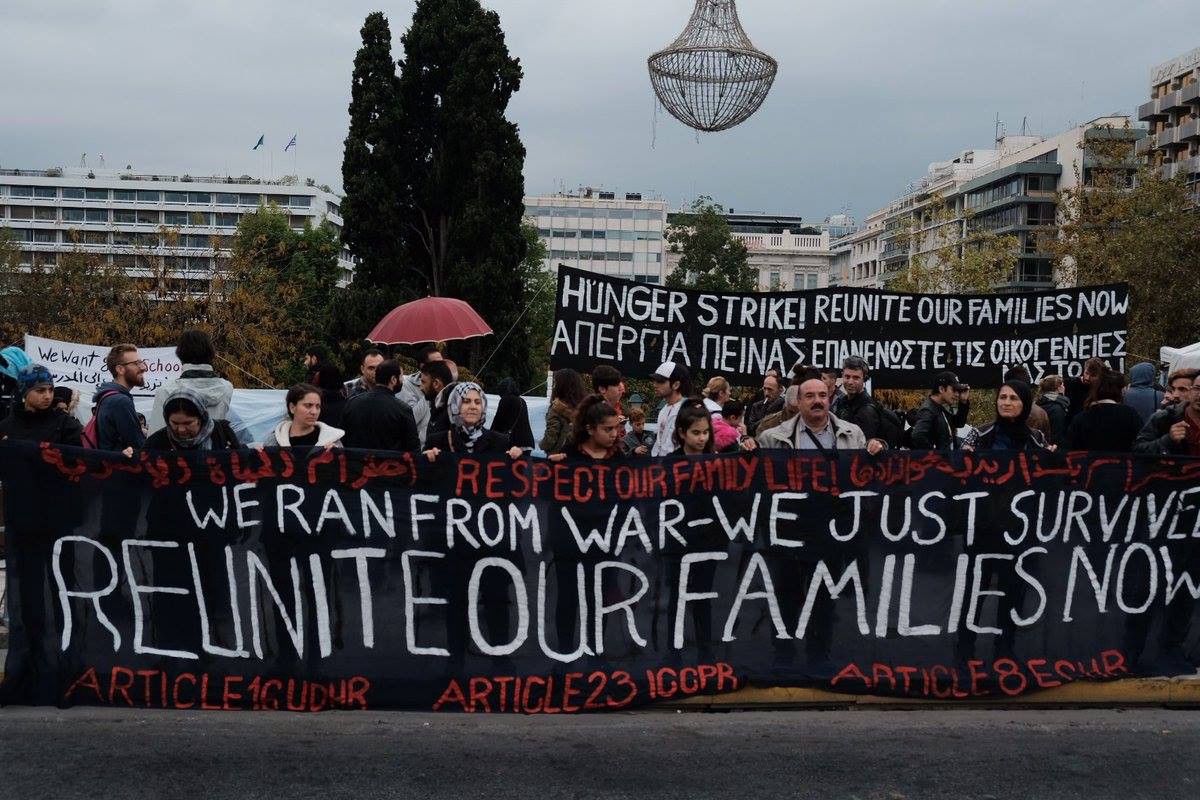 HÜNGER STRIKE! REUNITE OUR FAMILIES NOW
ΑΠΕΡΓΙΑ ΠΕΙΝΑΣ ΕΠΑΝΕΝΟΣΤΕ ΤΙΣ ΟΙΚΟΓΕΝΕΙΕΣ
ΜΑΣ
We Want School
RESPECT OUR FAMILY LIFE!
WE RAN FROM WAR-WE JUST SURVIVE
REUNITE OUR FAMILIES NOW
ARTICLE 16 UDHR ARTICLE 23 ICCPR ARTICLE 8 ECHR